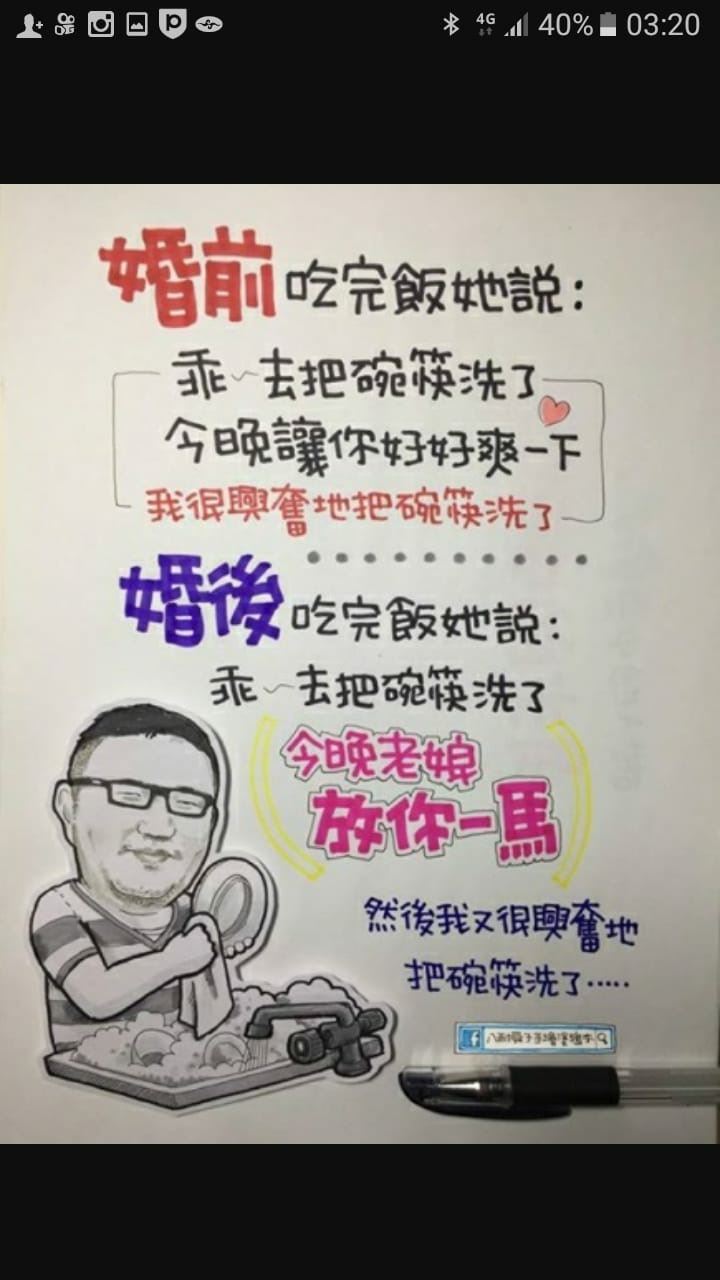 40% 03:20
4G
婚前吃完飯她説:
乖~去把碗筷洗了
今晚讓你好好爽一下
我很興奮地把碗筷洗了
婚後吃完飯她説:
乖~去把碗筷洗了
今晚老娘
放你一馬
然後我又很興奮地
把碗筷洗了.....